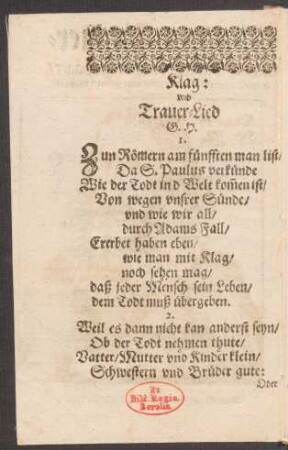 Klag:
vnd
Trauer-Lied
G. H.
1.
Zun Römern am fünfften man list/
Da S. Paulus verkünde
Wie der Todt in d Welt kom̃en ist/
Von wegen vnsrer Sünde/
vnd wie wir all/
durch Adams Fall/
Ererbet haben eben/
wie man mit Klag/
noch sehen mag/
daß jeder Mensch sein Leben/
dem Todt muß übergeben.
2.
Weil es dann nicht kan anderst seyn/
Ob der Todt nehmen thute/
Vatter/Mutter vnd Kinder klein/
Schwestern vnd Brüder gute:
Oder
Ex
Bibl. Regia
Berolin.